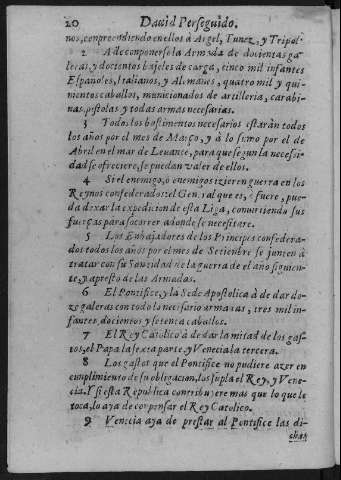 20 David Perseguido.
nos, conprendiendo en ellos à Argel, Tunez, y Tripol.
2 A de conponerse la Armada de docientas ga
leras, y docientos bajeles de carga, cinco mil infantes
Españoles, Italianos, y Alemanes, quatro mil y qui-
nientos caballos, municionados de artilleria, carabi-
nas, pistolas y todas armas necesarias.
3 Todos los bastimentos necesarios estaràn todos
los años por el mes de Março, y à lo sumo por el de
Abril en el mar de Levante, para que segun la necesi-
dad se ofreciere, se puedan valer de ellos.
4 Si el enemigo, ò enemigos izieren guerra en los
Reynos confederados: el General que es, ò fuere, pue-
da dexar la expedicion de esta Liga, convirtiendo sus
fuerças para socorrer adonde se necesitare.
5 Los Enbajadores de los Principes confedera-
dos todos los años por el mes de Setienbre se junten à
tratar con su Santidad de la guerra de el año siguien-
te, y apresto de las Armadas.
6 El Pontifice, y la Sede Apostolica à de dar do-
ze galeras con todo lo necesario armadas, tres mil in-
fantes, docientos y setenta caballos.
7 El Rey Catolico à de dar la mitad de los gas-
tos, el Papa la sexta parte, y Venecia la tercera.
8 Los gastos que el Pontifice no pudiere azer en
cunplimiento de su obligacion, los supla el Rey, y Vene-
cia. Y si esta Republica contribuyere mas que lo que le
toca, lo aya de conpensar el Rey Catolico.
9 Venecia aya de prestar al Pontifice las di-
chas